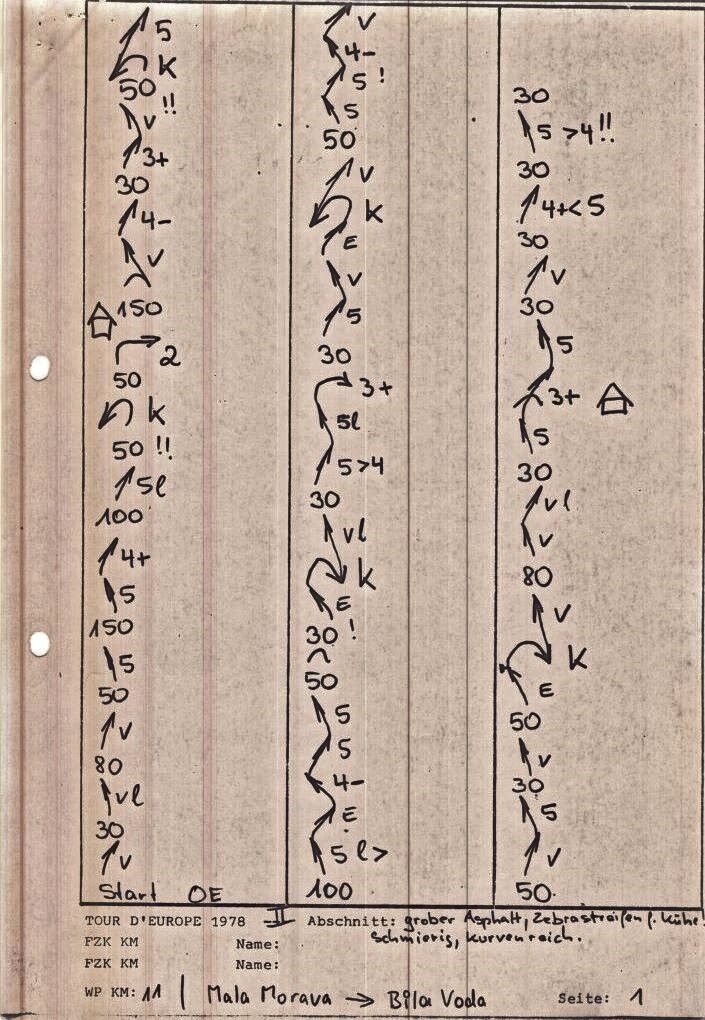 5
K
50
!!
V
3+
30
4-
V
150
2
50
K
50 !!
5l
100
4+
5
150
5
50
V
80
Vl
30
V
Start OE
V
4-
5 !
5
50
V
K
E
V
5
30
3+
5l
5>4
30
Vl
K
E
30 !
50
5
5
4-
E
5 l>
100
30
5 >4!!
30
4+<5
30
V
30
5
3+
5
30
Vl
V
80
V
K
E
50
V
30
5
V
50
TOUR D'EUROPE 1978 II Abschnitt: grober Asphalt, Zebrastreifen f. Kühe!
FZK KM Name: Schmierig, kurvenreich.
FZK KM Name:
WP KM: 11 | Mala Morava → Bila Voda Seite: 1